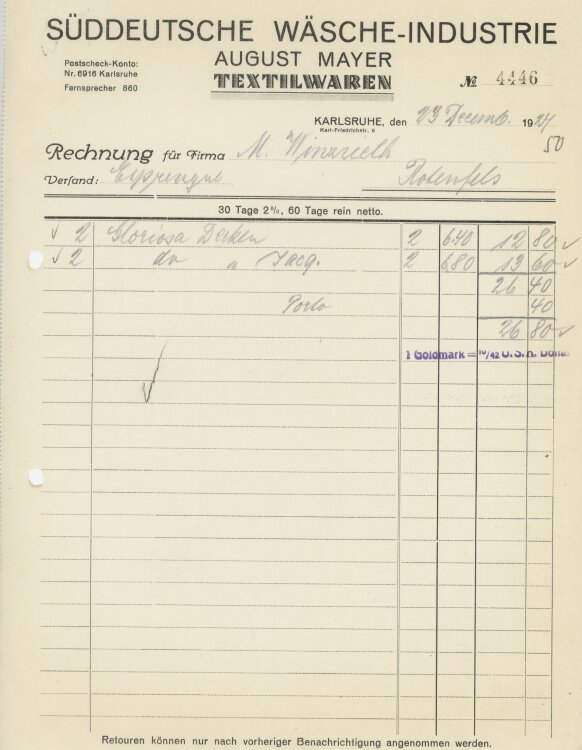 SÜDDEUTSCHE WÄSCHE-INDUSTRIE
AUGUST MAYER
TEXTILWAREN
Postscheck-Konto:
Nr. 6916 Karlsruhe
Fernsprecher 860
№ 4446
KARLSRUHE, den 23 Decemb. 1924
Karl-Friedrichstr. 6
50
Rechnung für Firma M.
Versand: Rotenfels
30 Tage 2%, 60 Tage rein netto.
√ 2 Gloriosa Decken 2 6.40 12 80
√ 2 do " Jacq. 2 6.80 13 60
26 40
Porto 40
26 80
1 Goldmark = 10/42 U.S.A. Dollar
Retouren können nur nach vorheriger Benachrichtigung angenommen werden.